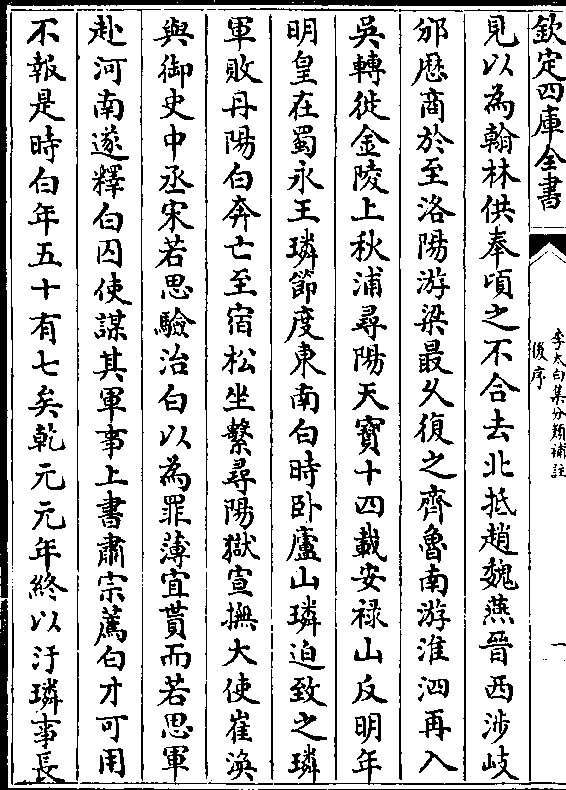 欽定四庫全書
李太白集分類補註
後序
一
見以為翰林供奉頃之不合去北抵趙魏燕晉西涉岐
邠歴商於至洛陽游梁最乆復之齊魯南游淮泗再入
吳轉徙金陵上秋浦尋陽天寳十四載安禄山反明年
明皇在蜀永王璘節度東南白時卧廬山璘迫致之璘
軍敗丹陽白奔亡至宿松坐繫尋陽獄宣撫大使崔渙
與御史中丞宋若思驗治白以為罪薄宜貰而若思軍
赴河南遂釋白囚使謀其軍事上書肅宗薦白才可用
不報是時白年五十有七矣乾元元年終以汙璘事長